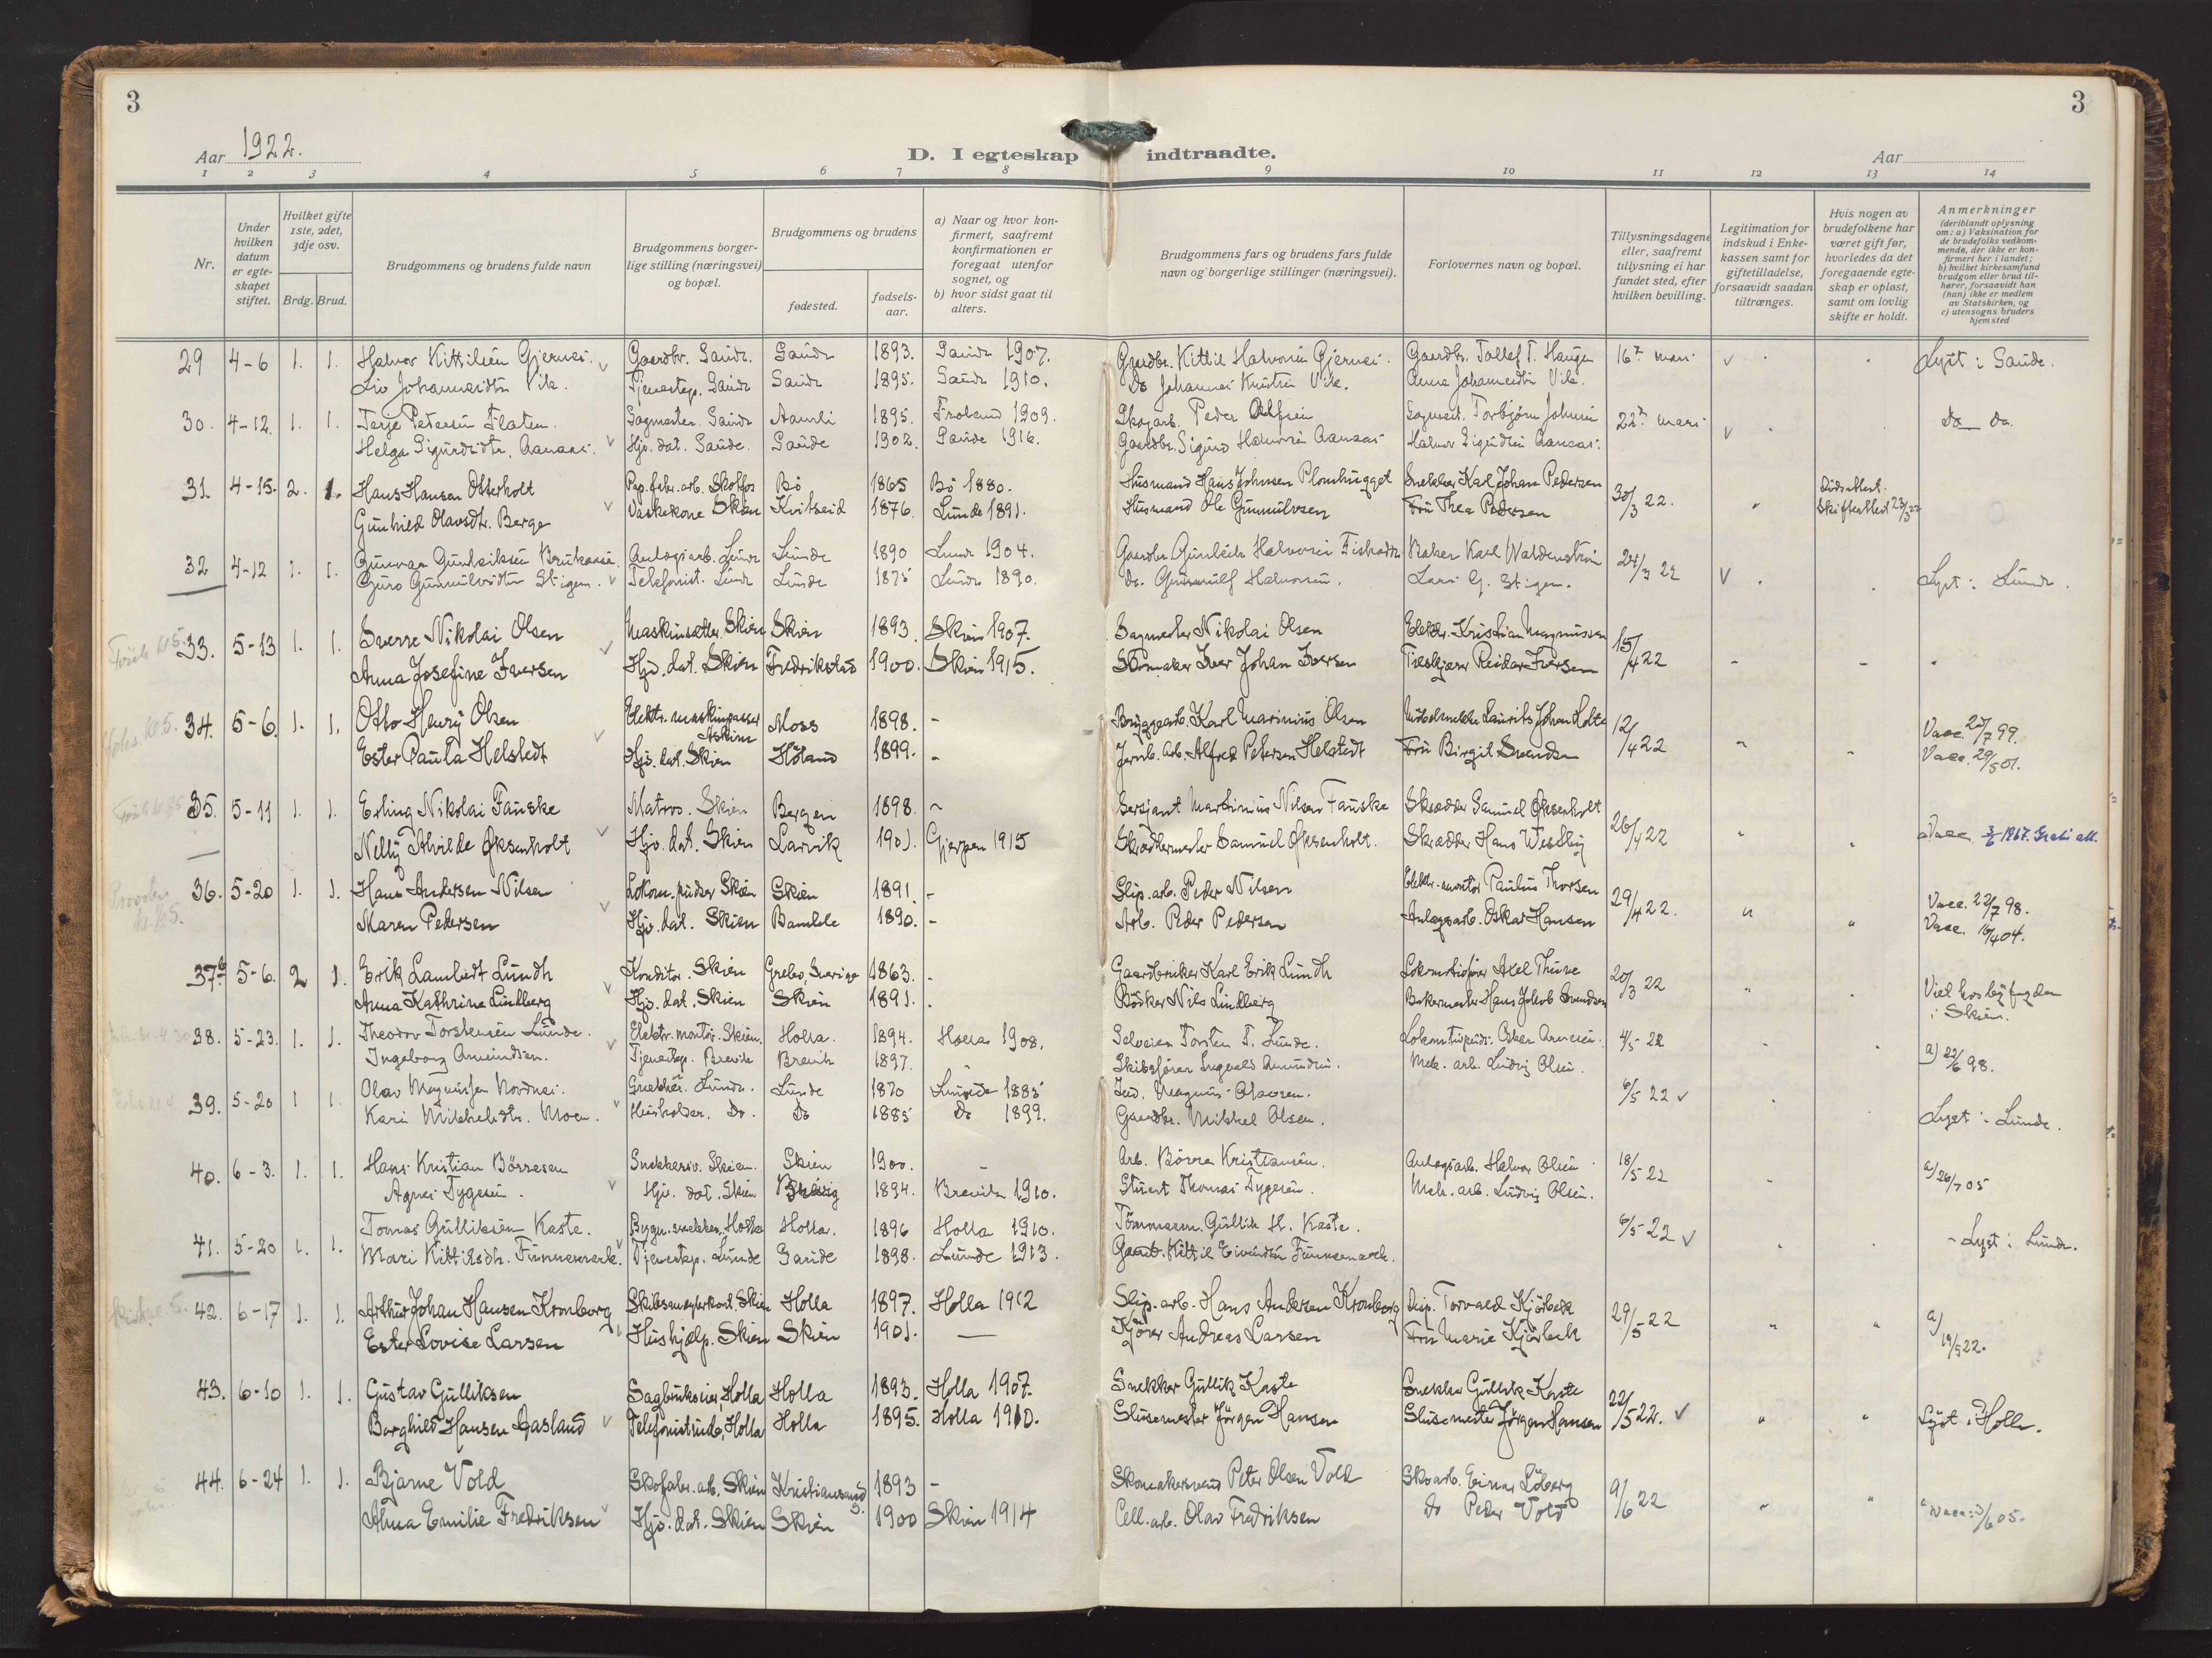 3
3
Aar 1922.
D. I egteskap indtraadte.
Aar
1 2 3 4 5 6 7 8 9 10 11 12 13 14
Nr.
Under hvilken datum er egteskapet stiftet.
Hvilket gifte 1ste, 2det, 3dje osv.
Brdg. Brud.
Brudgommens og brudens fulde navn
Brudgommens borgerlige stilling (næringsvei) og bopæl.
Brudgommens og brudens
fødested.
fødselsaar.
a) Naar og hvor konfirmert, saafremt konfirmationen er foregaat utenfor sognet, og
b) hvor sidst gaat til alters.
Brudgommens fars og brudens fars fulde navn og borgerlige stillinger (næringsvei).
Forlovernes navn og bopæl.
Tillysningsdagene eller, saafremt tillysning ei har fundet sted, efter hvilken bevilling.
Legitimation for indskud i Enkekassen samt for giftetilladelse, forsaavidt saadan tiltrænges.
Hvis nogen av brudefolkene har været gift før, hvorledes da det foregaaende egteskap er opløst, samt om lovlig skifte er holdt.
Anmerkninger
(deriblandt oplysning om: a) Vaksination for de brudefolks vedkommende, der ikke er konfirmert her i landet;
b) hvilket kirkesamfund brudgom eller brud tilhører, forsaavidt han (hun) ikke er medlem av Statskirken, og
c) utensogns bruders hjemsted
29 4-6 1. 1. Halvor Kittilsen Gjernes. Gaardbr. Saude. Saude 1893. Saude 1907. Gaardbr. Kittil Halvorsen Gjernes. Gaardbr. Tollef T. Haugen 16de mars Lyst i Saude.
Liv Johannesdtr. Vik. Tjenestep. Saude Saude 1895. Saude 1910. Do Johannes Knutsen Vik. Anna Johannesdtr Vik.
30. 4-12. 1. 1. Terje Petersen Flaten. Sagmester. Saude Aamli 1895. Froland 1909. Skogarb. Peder 22de mars Do Do.
Helga Sigurdsdtr. Aanaas. Hjv. dat. Saude. Saude 1902. Saude 1916. Gaardbr. Sigurd Halvorsen Aanaas. Halvor Sigurdsen Aanaas.
31. 4-15. 2. 1. Hans Hansen Otterholt Pap.fabr.arb. Skotfos Bø 1865 Bø 1880. Husmand Hans Johnsen Plomhugget Snekker Karl Johan Pedersen 30/3 22. Dødsattest.
Gunhild Olavsdtr. Berge Vaskekone Skien Kviteseid 1876. Lunde 1891. Husmand Ole Gunnulvsen Fru Thea Pedersen Skifteattest 23/3 22
32 4-12 1. 1. Gunvar Gunleiksen Anlægsarb. Lunde Lunde 1890 Lunde 1904. Gaardbr. Gunleik Halvorsen Baker Karl Waldenstrøm 24/3 22 Lyst i Lunde.
Guro Gunnulvsdtr Stigen. Telefonist. Lunde Lunde 1875 Lunde 1890. do. Gunnulf Halvorsen. Lars G. Stigen.
33. 5-13 1. 1. Sverre Nikolai Olsen Maskinsætter. Skien Skien 1893. Skien 1907. Sagmester Nikolai Olsen Elektr. Kristian Magnussen 15/4 22
Anna Josefine Iversen Hjv. dat. Skien Fredrikstad 1900. Skien 1915. Skomaker Iver Johan Iversen Træskjærer Reidar Iversen
34. 5-6. 1. 1. Otto Henry Olsen Elektr. maskinpasser Askim Moss 1898. - Bryggearb. Karl Marinius Olsen Møbelsnekker Laurits Johan Holte 12/4 22 Vacc. 22/7 99.
Ester Paula Helstedt Hjv. dat. Skien Høland 1899. - Jernb. arb. Alfred Petersen Helstedt Fru Birgit Svendsen Vacc. 29/5 01.
35. 5-11 1. 1. Erling Nikolai Fauske Matros. Skien Bergen 1898. - Sersjant Martinius Nilsen Fauske Skrædder Samuel Øksenholt 26/4 22 Vacc. 3/6 1867. Gratis att.
Nelly Alvilde Øksenholt Hjv. dat. Skien Larvik 1901. Gjerpen 1915 Skræddermester Samuel Øksenholt. Skrædder Hans Westby
36. 5-20 1. 1. Hans Andersen Nilsen Lokom. pudser Skien Skien 1891. - Slip. arb. Peder Nilsen Elektr.-montør Paulus Thorsen 29/4 22. Vacc. 22/7 98.
Maren Pedersen Hjv. dat. Skien Bamble 1890. - Arb. Peder Pedersen Anlægsarb. Oskar Hansen Vacc. 16/4 04.
37. 5-6. 2 1. Erik Lambert Lundh Konditor. Skien Grebo, Sverige 1863. - Gaardbruker Karl Erik Lundh Lokomotivfører Axel Thune 20/3 22 Viet hos byfogden i Skien.
Anna Kathrine Lindberg Hjv. dat. Skien Skien 1891. Bødker Nils Lindberg Bokermester Hans Jakob Svendsen
38. 5-23. 1. 1. Theodor Torstensen Lunde. Elektr. montør. Skien. Holla. 1894. Holla 1908. Selveier Torsten T. Lunde. 4/5 - 22 a) 22/6 98.
Ingeborg Amundsen. Tjenestep. Brevik Brevik 1897. - Skibsfører Ingvald Amundsen. Mek. arb. Ludvig Olsen.
39. 5-20 1 1. Olav Magnussen Nordnes. Snekker. Lunde. Lunde 1870 Lunde 1885 Ind. Magnus Olavsen. 6/5 22 Lyst i Lunde.
Kari Mikkelsdtr. Moen. Husholder. Do. Do 1885 Do 1899. Gaardbr. Mikkel Olsen.
40. 6-3. 1. 1. Hans Kristian Börresen Snekkersv. Skien. Skien 1900. - Arb. Börre Kristiansen. Anlægsarb. Halvor Olsen 18/5 22 a) 26/7 05
Agnes Tygesen. Hjv. dat. Skien 1894. Brevik 1910. Stuert Thomas Tygesen. Mek. arb. Ludvig Olsen.
41. 5-20 1. 1. Tomas Gulliksen Kaste. Bygn. snekker. Holla Holla. 1896 Holla 1910. Tömmerm. Gullik H. Kaste. 6/5 22 Lyst i Lunde.
Mari Kittilsdtr. Finnemark. Tjenestep. Lunde Saude 1898. Lunde 1913. Gaardb. Kittil Eivindsen Finnemark.
42. 6-17 1. 1. Arthur Johan Hansen Kronborg Skibsmeglerkont. Skien Holla 1897. Holla 1912 Slip. arb. Hans Andersen Kronborg Disp. Torvald Kjörbeck 29/5 22 a/ 19/5 22.
Ester Lovise Larsen Hushjælp. Skien Skien 1901. — Kjörer Andreas Larsen Fru Marie Kjörbeck
43. 6-10 1. 1. Gustav Gulliksen Sagbrukseier, Holla Holla 1893. Holla 1907. Snekker Gullik Kaste Snekker Gullik Kaste 22/5 22. Lyst i Holla.
Borghild Hansen Aasland Telefonistinde, Holla Holla 1895. Holla 1910. Slusemester Jörgen Hansen Slusemester Jörgen Hansen
44. 6-24 1. 1. Bjarne Vold Skofabr. arb. Skien Kristiansand S. 1893 - Skomakersvend Peter Olsen Vold Skoarb. Einar Löberg 9/6 22 Vacc: 3/6 05.
Alma Emilie Fredriksen Hjv. dat. Skien Skien 1900 Skien 1914 Cell. arb. Olav Fredriksen do Peder Vold